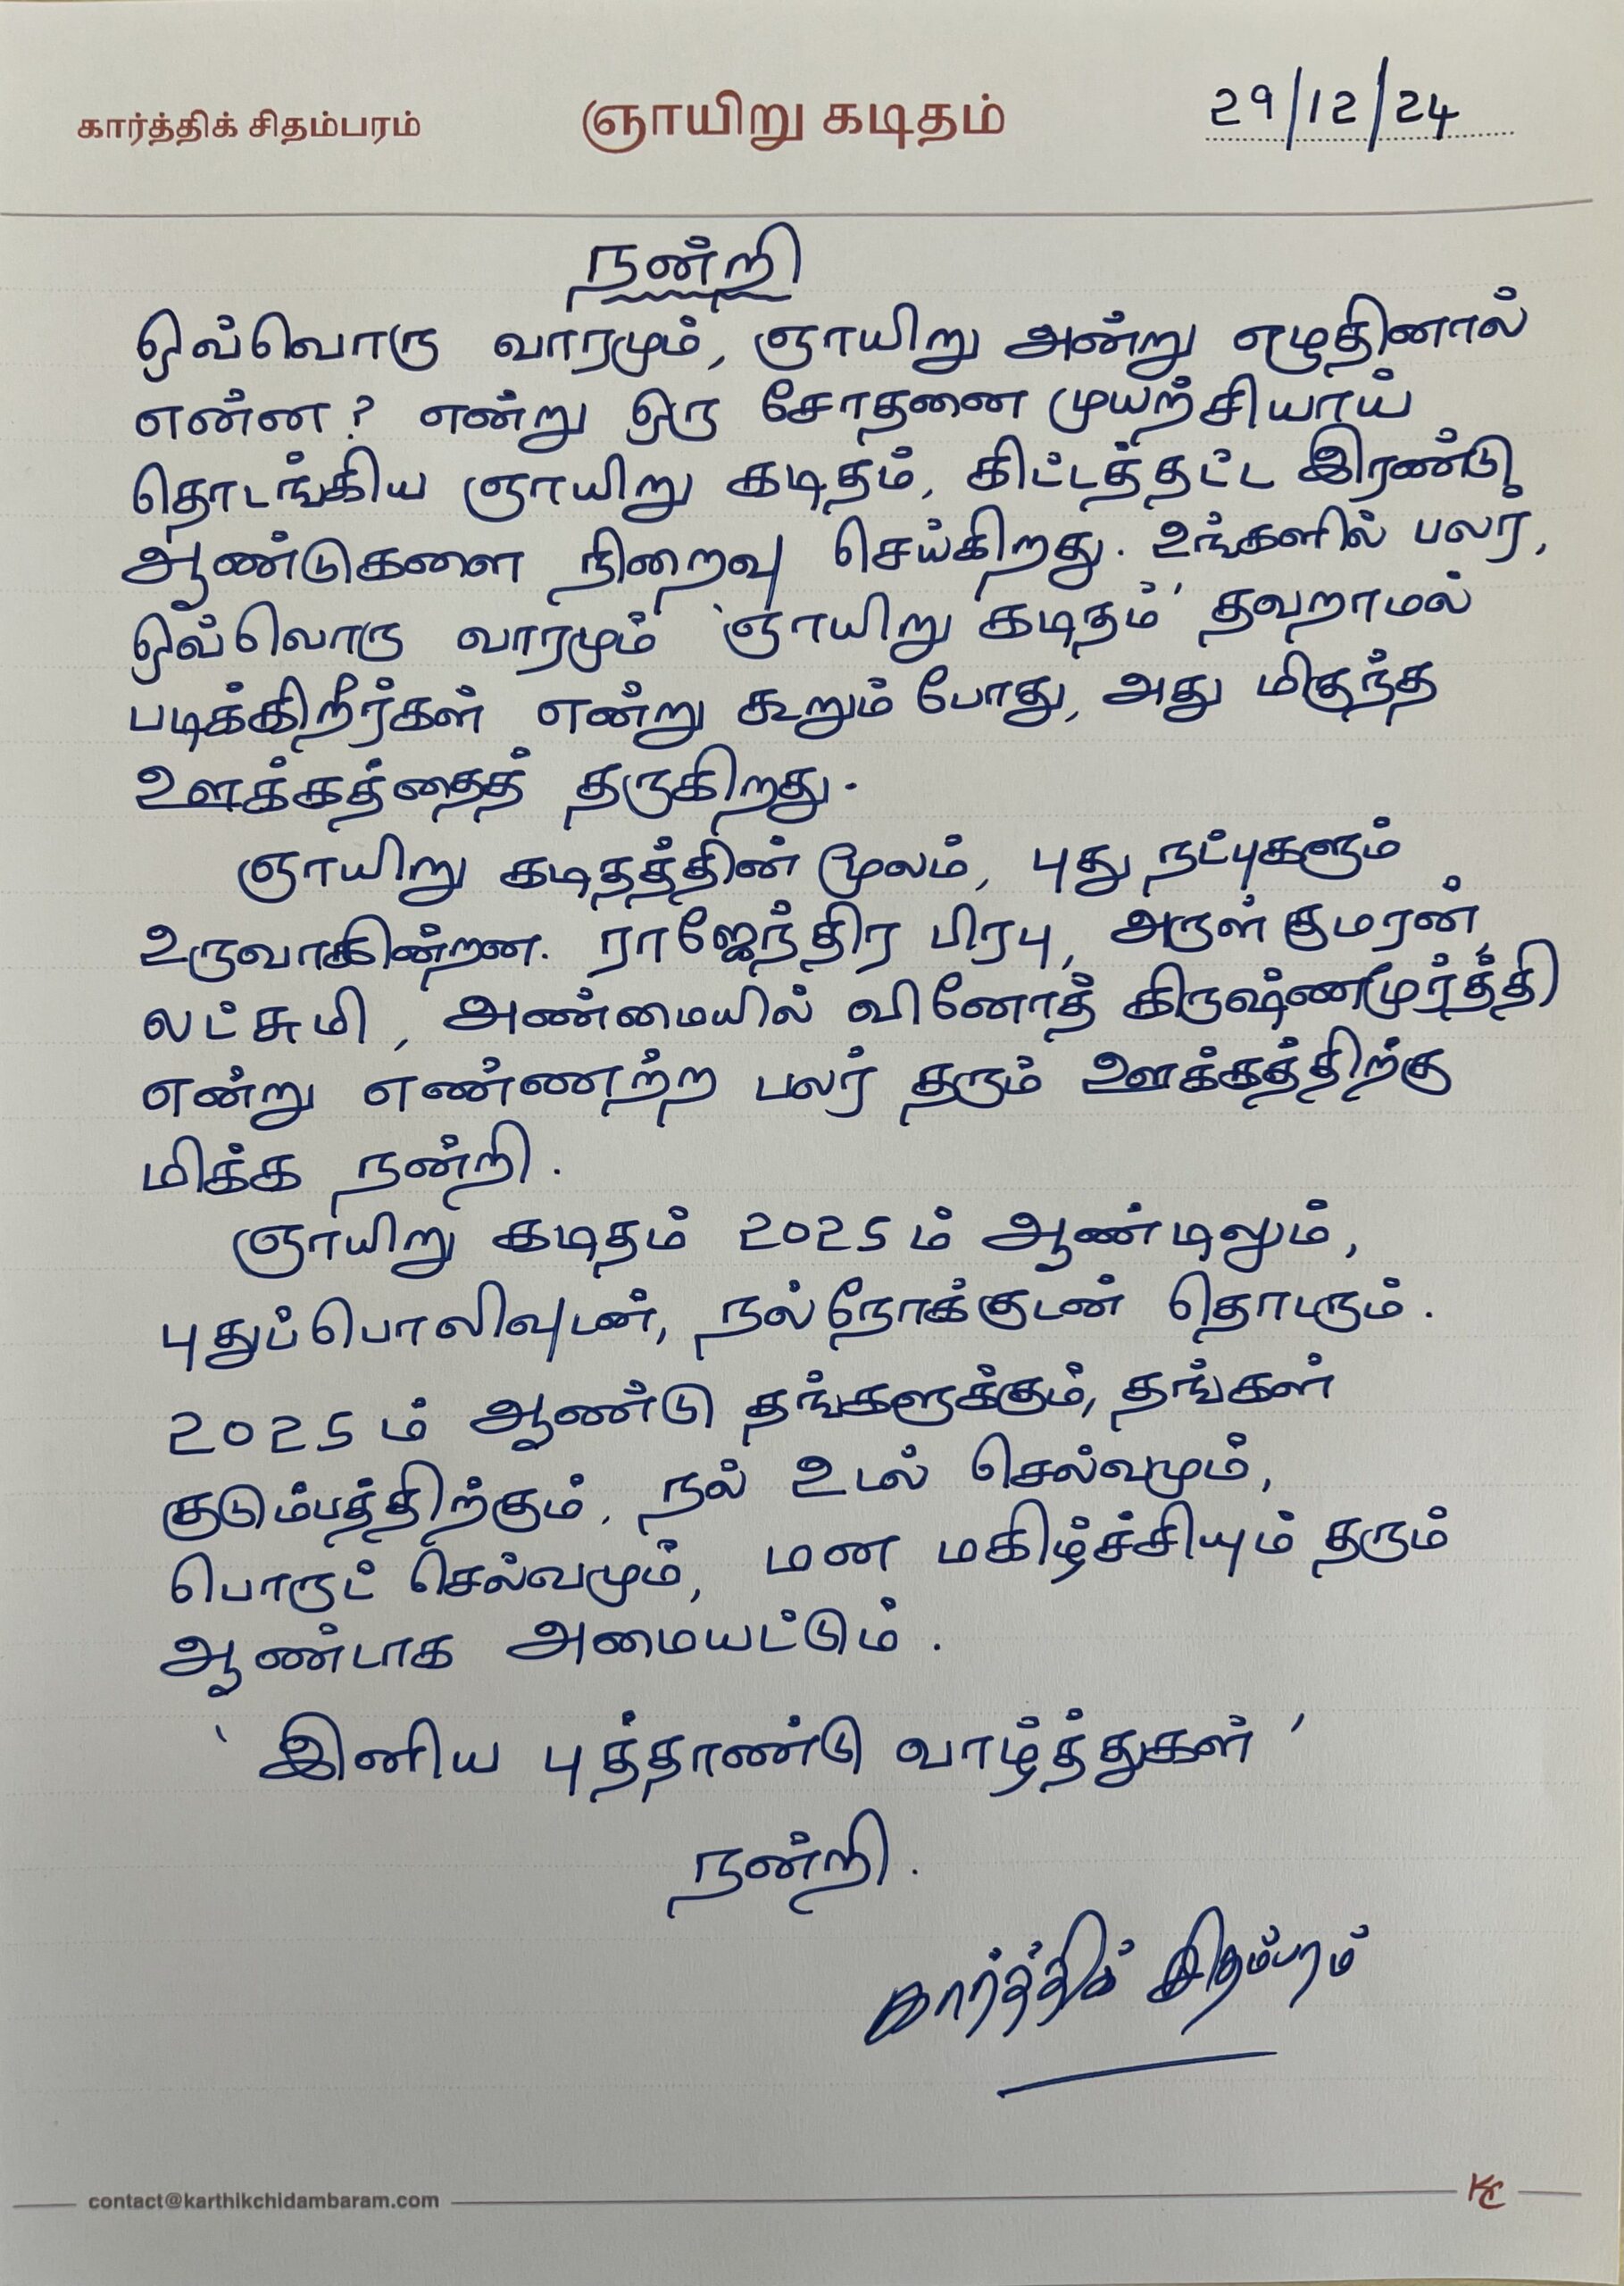 கார்த்திக் சிதம்பரம்
ஞாயிறு கடிதம்
29/12/24
நன்றி
ஒவ்வொரு வாரமும், ஞாயிறு அன்று எழுதினால்
என்ன? என்று ஒரு சோதனை முயற்சியாய்
தொடங்கிய ஞாயிறு கடிதம், கிட்டத்தட்ட இரண்டு
ஆண்டுகளை நிறைவு செய்கிறது. உங்களில் பலர்,
ஒவ்வொரு வாரமும் 'ஞாயிறு கடிதம்' தவறாமல்
படிக்கிறீர்கள் என்று கூறும் போது, அது மிகுந்த
ஊக்கத்தைத் தருகிறது.
ஞாயிறு கடிதத்தின் மூலம், புது நட்புகளும்
உருவாகின்றன. ராஜேந்திர பிரபு, அருள் குமரன்,
லட்சுமி, அண்மையில் வினோத் கிருஷ்ணமூர்த்தி
என்று எண்ணற்ற பலர் தரும் ஊக்கத்திற்கு
மிக்க நன்றி.
ஞாயிறு கடிதம் 2025ம் ஆண்டிலும்,
புதுப்பொலிவுடன், நல்நோக்குடன் தொடரும்.
2025ம் ஆண்டு தங்களுக்கும், தங்கள்
குடும்பத்திற்கும், நல் உடல் செல்வமும்,
பொருட் செல்வமும், மன மகிழ்ச்சியும் தரும்
ஆண்டாக அமையட்டும்.
'இனிய புத்தாண்டு வாழ்த்துகள்'
நன்றி.
கார்த்திக் சிதம்பரம்
contact@karthikchidambaram.com
KC